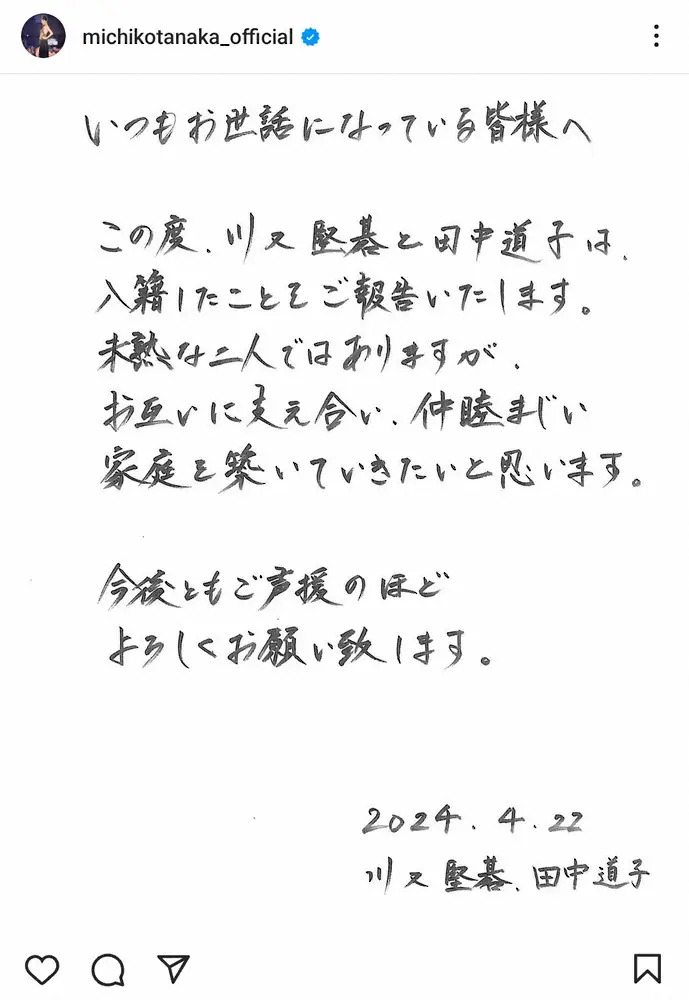 michikotanaka_official
いつもお世話になっている皆様へ
この度、川又堅碁と田中道子は、
入籍したことをご報告いたします。
未熟な二人ではありますが、
お互いに支え合い、仲睦まじい
家庭を築いていきたいと思います。
今後ともご声援のほど
よろしくお願い致します。
2024.4.22
川又堅碁、田中道子